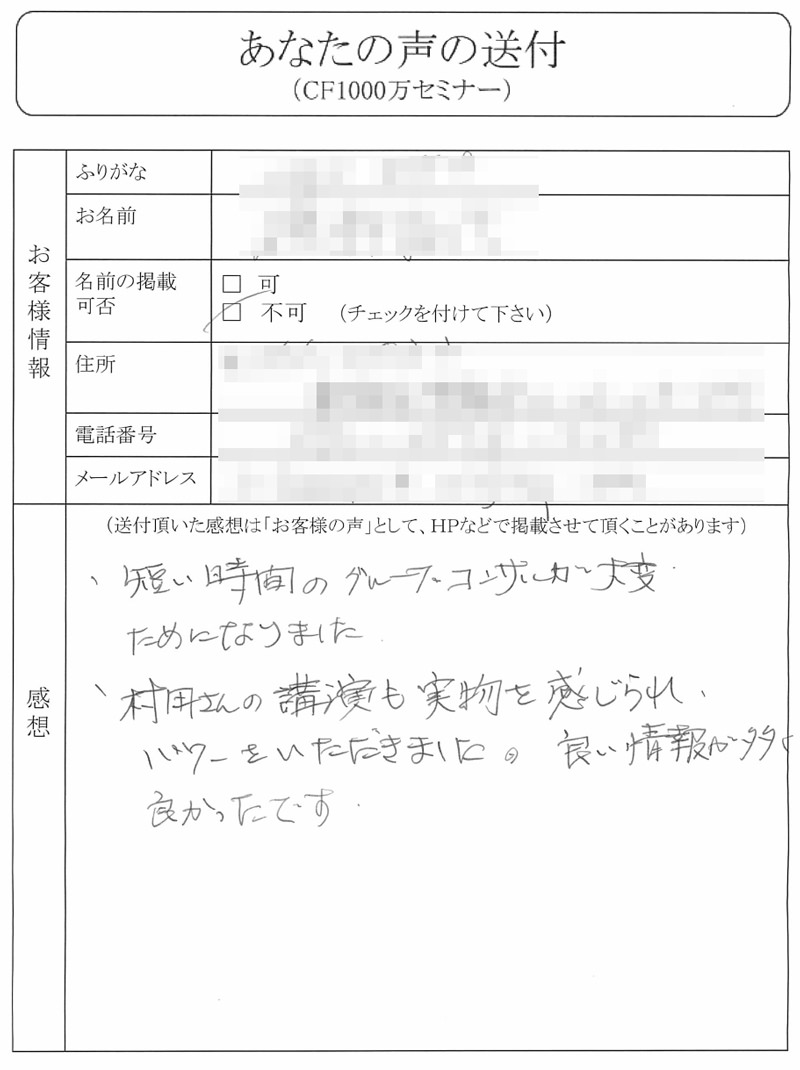 あなたの声の送付
（CF1000万セミナー）
お客様情報
ふりがな
お名前
名前の掲載
可否
□ 可
□ 不可 （チェックを付けて下さい）
住所
電話番号
メールアドレス
感想
（送付頂いた感想は「お客様の声」として、HPなどで掲載させて頂くことがあります）
、短い時間のグループコンサルが大変
ためになりました
、村田さんの講演も実物を感じられ、
パワーをいただきました。良い情報が多く
良かったです.